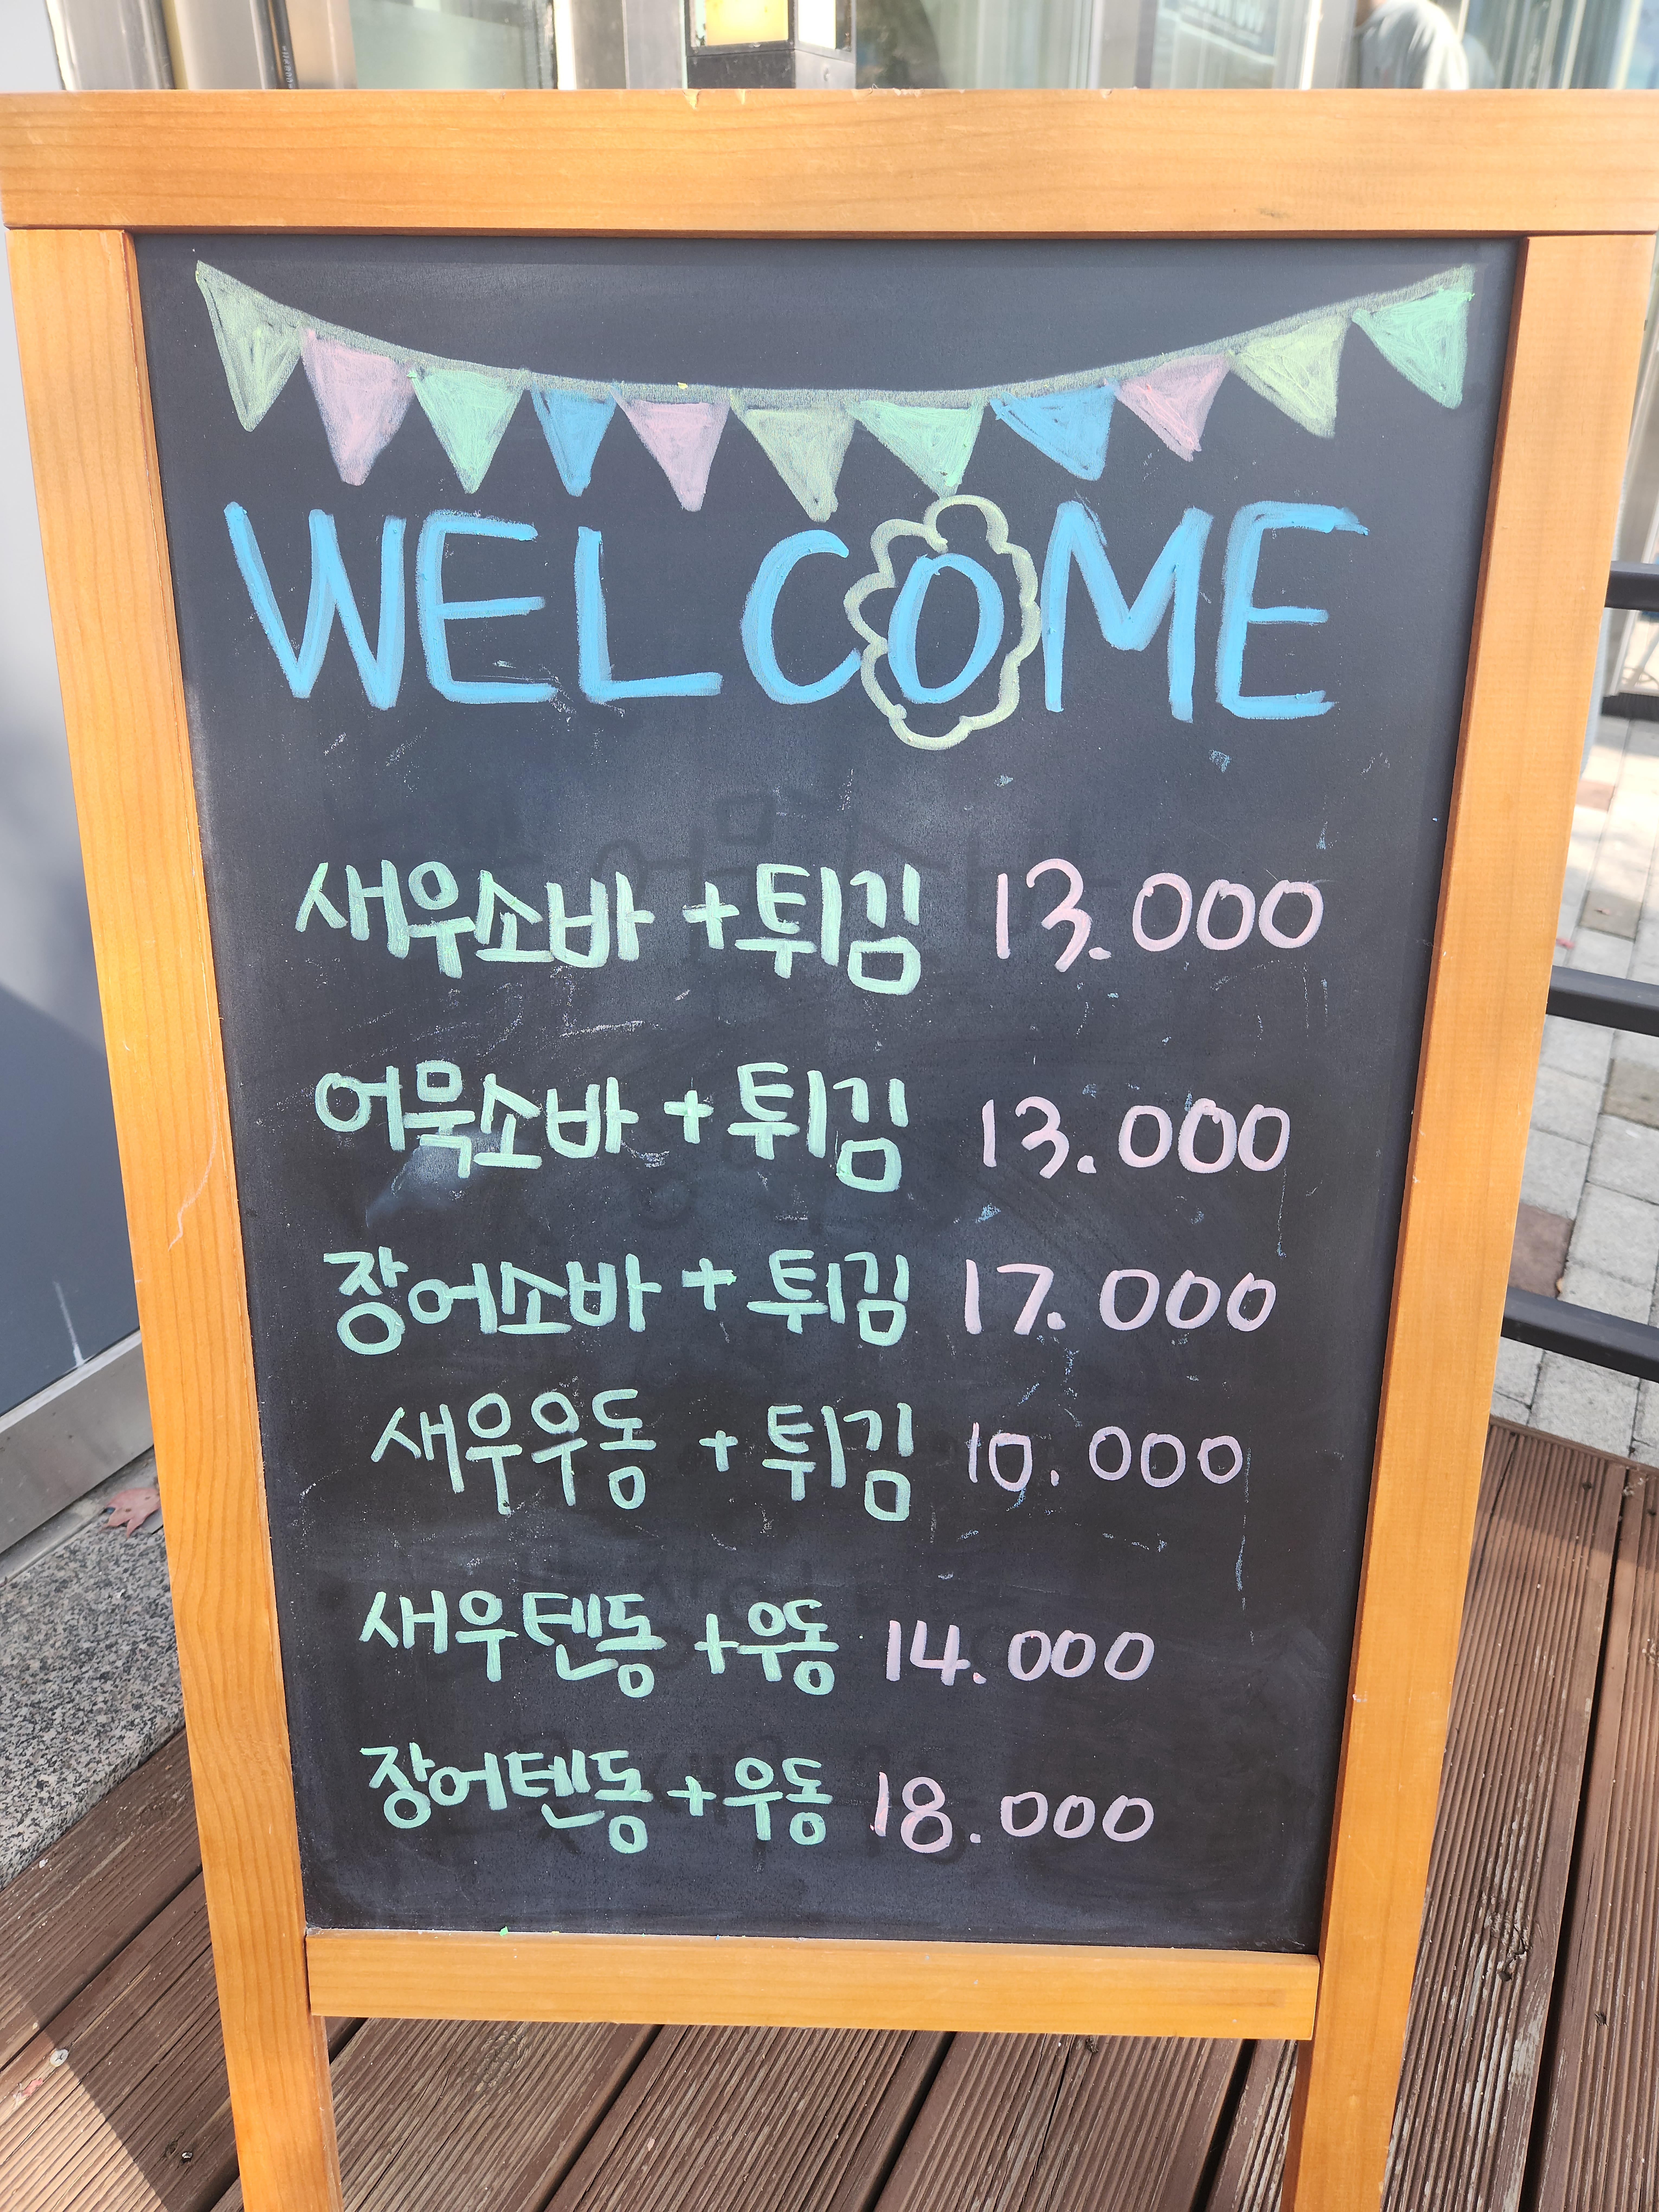 WELCOME
새우소바 + 튀김 13.000
어묵소바 + 튀김 13.000
장어소바 + 튀김 17.000
새우우동 + 튀김 10.000
새우텐동 + 우동 14.000
장어텐동 + 우동 18.000